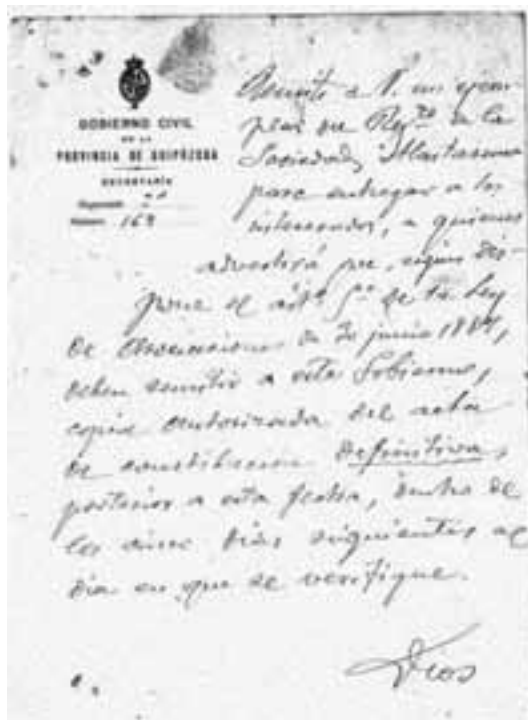 GOBIERNO CIVIL
DE LA
PROVINCIA DE GUIPÚZCOA
SECRETARÍA
168
Remito a V. un ejem-
plar de Regto de la
Sociedad
para entregar a los
interesados, a quienes
advertirá que, según dis-
pone el artº 5º de la Ley
de Asociaciones de 30 junio 1887,
deben remitir a este Gobierno,
copia autorizada del acta
de constitución definitiva,
posterior a esta fecha, dentro de
los cinco días siguientes al
día en que se verifique.
Dios